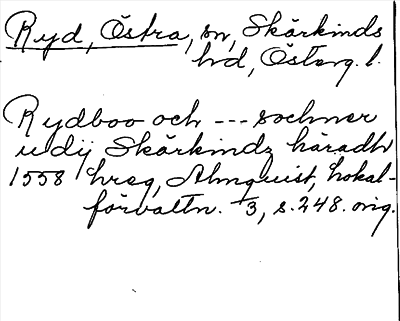 Ryd, Östra, sn, Skärkinds
hd, Österg. l.
Rydboo och --- sochner
udij Skärkindz häradh
1558 hreg, Almquist, Lokal-
förvaltn. 3, s. 248. orig.